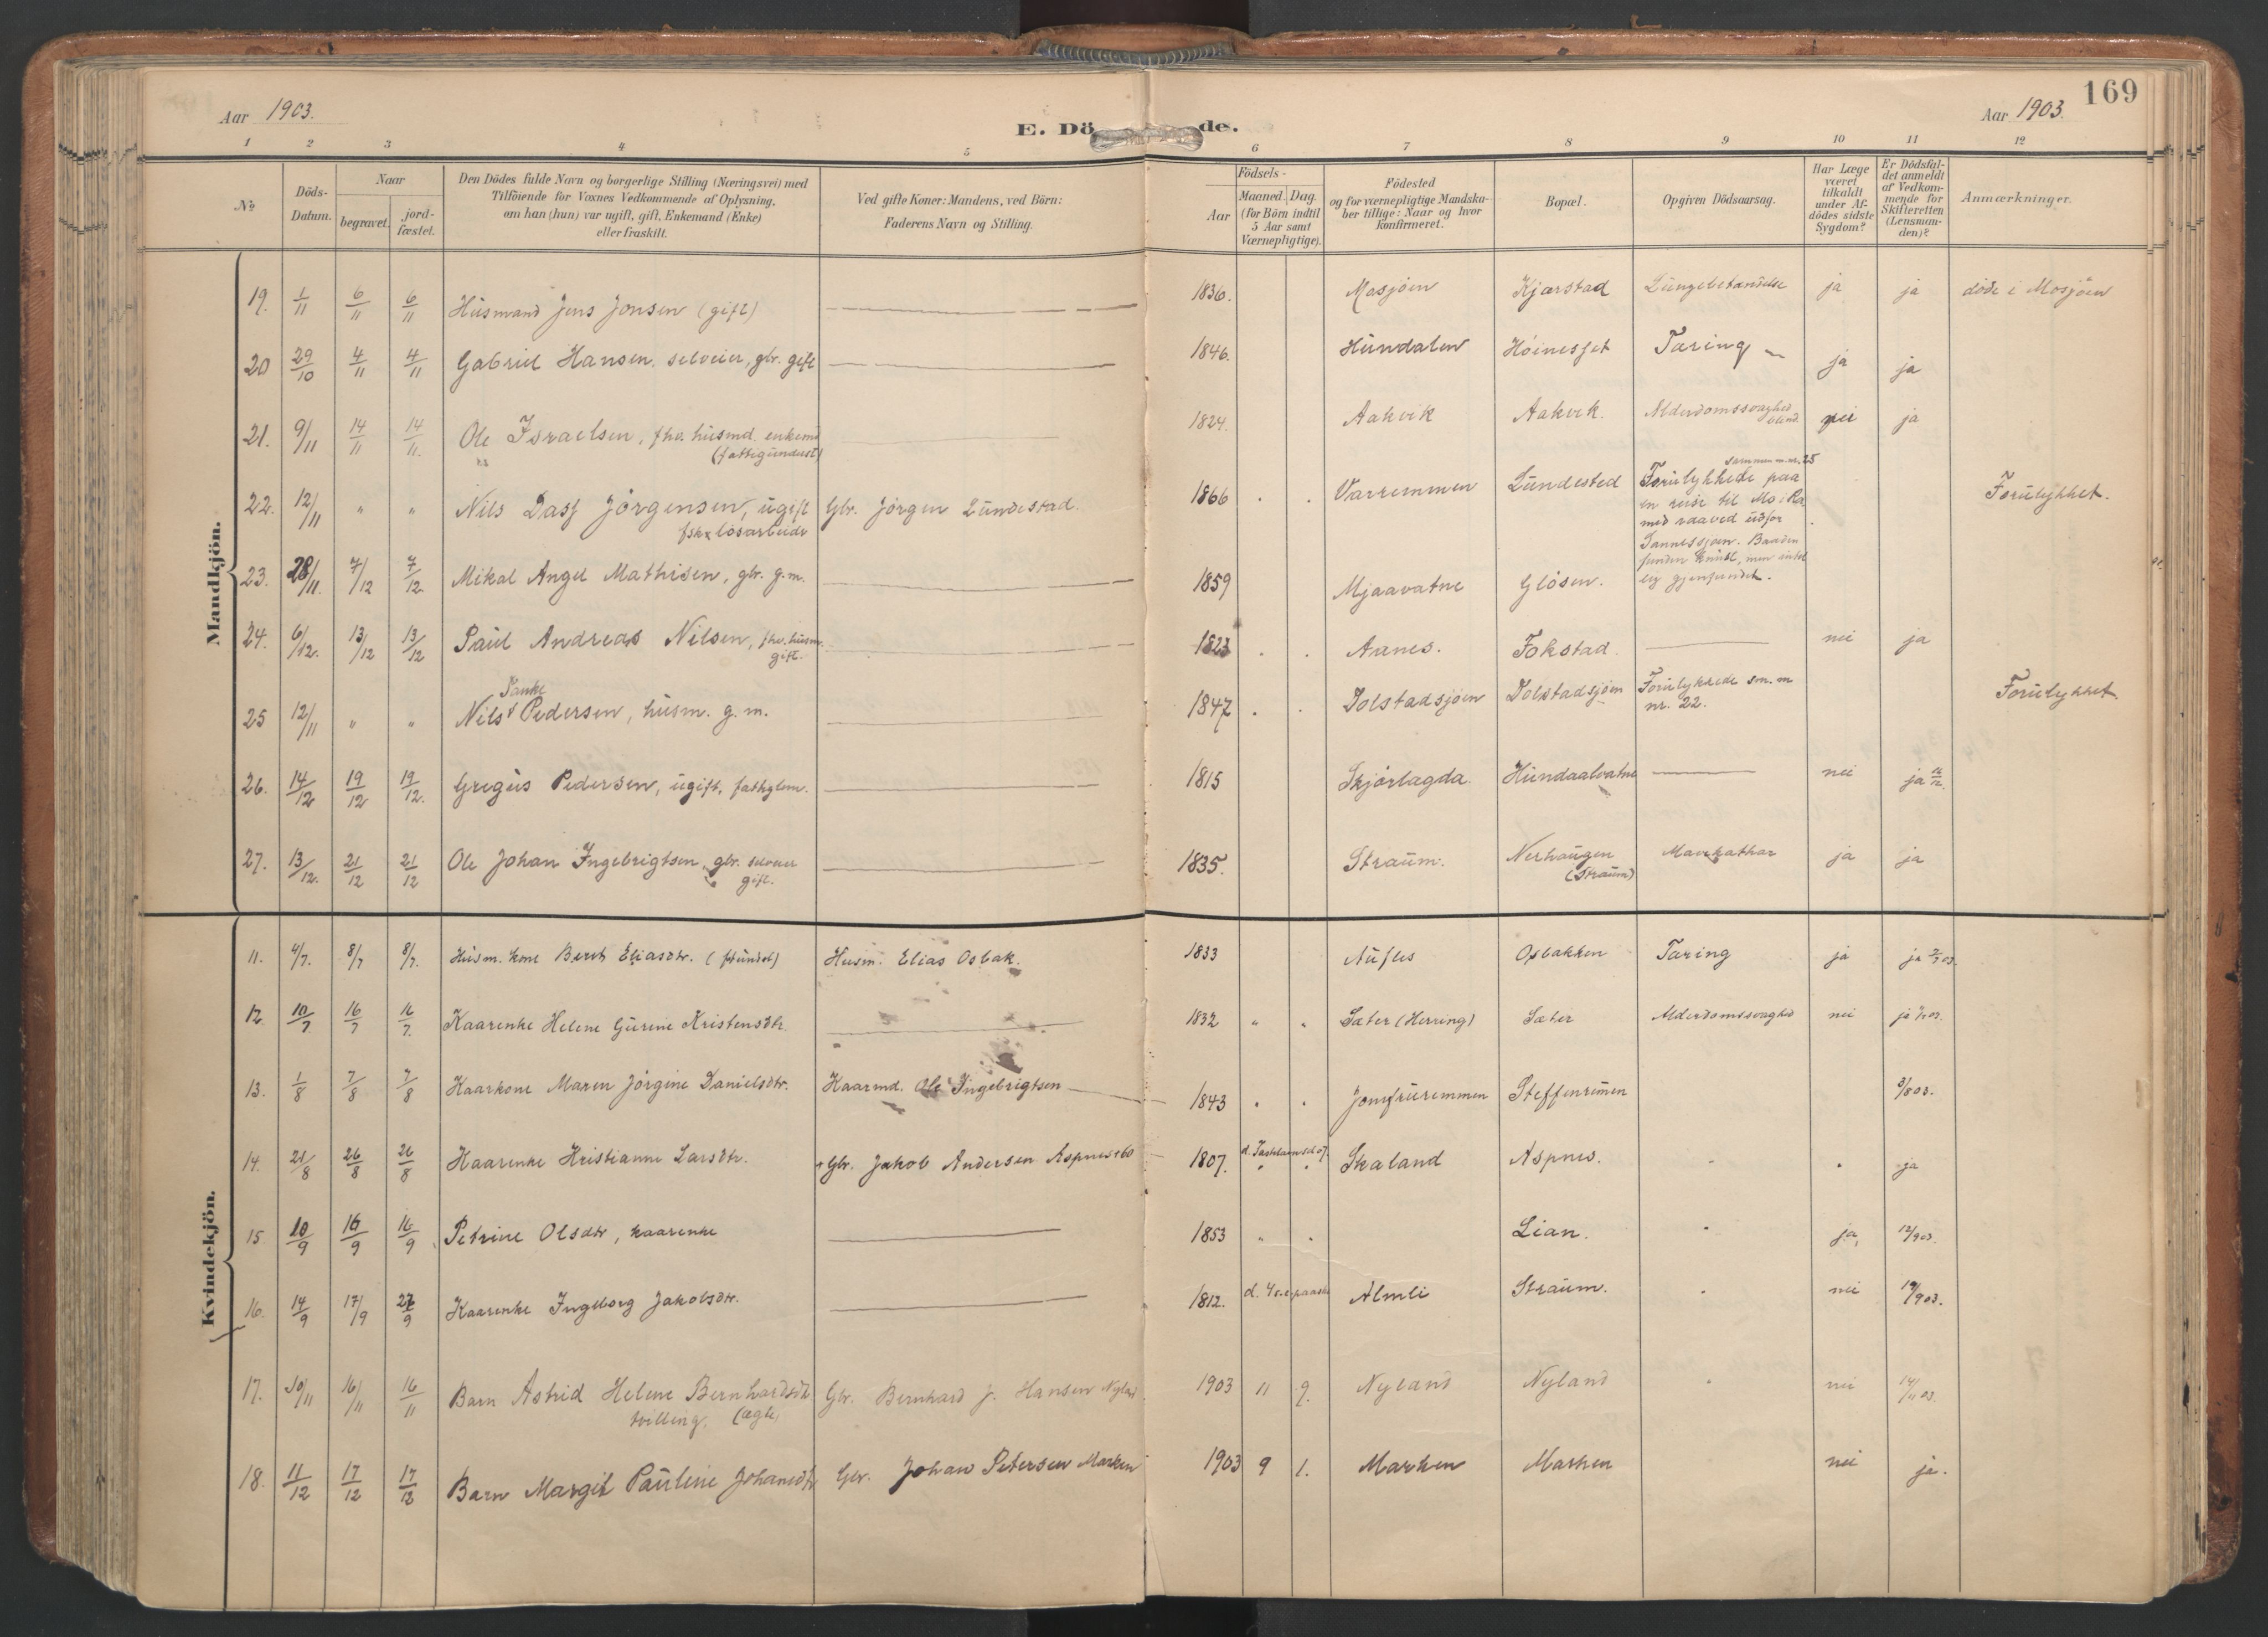 169
Aar 1903.
Aar 1903.
E. Dö de.
1 2 3 4 5 6 7 8 9 10 11 12
№
Döds-Datum.
Naar
begravet.
jord-fæstet.
Den Dödes fulde Navn og borgerlige Stilling (Næringsvei) med
Tilföiende for Voxnes Vedkommende af Oplysning,
om han (hun) var ugift, gift, Enkemand (Enke)
eller fraskilt.
Ved gifte Koner: Mandens, ved Börn:
Faderens Navn og Stilling.
Födsels-
Aar
Maaned. Dag.
(for Börn indtil
5 Aar samt
Værnepligtige).
Födested
og for værnepligtige Mandska-
ber tillige: Naar og hvor
konfirmeret.
Bopæl.
Opgiven Dödsaarsag.
Har Læge
været
tilkaldt
under Af-
dödes sidste
Sygdom?
Er Dödsfal-
det anmeldt
af Vedkom-
mende for
Skifteretten
(Lensman-
den)?
Anmærkninger.
Mandkjön.
19. 1/11 6/11 6/11 Husmand Jens Jonsen (gift) 1836. Mosjöen Kjærstad Lungebetændelse ja ja döde i Mosjöen
20 29/10 4/11 4/11 Gabriel Hansen. selveier, gbr. gift 1846. Hundalen Höinesset Tæring ja ja
21. 9/11 14/11 14/11. Ole Israelsen, fhv. husmd. enkemd (fattigunderst) 1824. Aakvik Aakvik. Alderdomssvaghed blind. nei ja
22. 12/11 " " Nils Dass Jörgensen, ugift fsk. lösarbeider Gbr. Jörgen Lundestad. 1866 . . Varremmen Lundested Forulykkede sammen m. nr. 25
paa en reise til Mo i Ra.
med raaved udfor
Sannessjöen. Baaden
funden knust, men intet
lig gjenfundet.
Forulykket.
23. 28/11. 7/12 7/12 Mikal Angel Mathisen, gbr. g.m. 1859 Mjaavatne Glösen.
24. 6/12. 13/12 13/12 Paul Andreas Nilsen, fhv. husm. gift. 1823 . . Aanes. Fokstad. nei ja
25 12/11 " " Nils Tanke Pedersen, husm. g.m. 1847 . . Dolstadsjöen Dolstadsjöen Forulykkede sm. m nr. 22. Forulykket
26. 14/12 19/12 19/12. Gregus Pedersen, ugift, fattiglem. 1815 Skjörlagda. Hundaalvatne nei ja
27. 13/12. 21/12 21/12 Ole Johan Ingebrigtsen, gbr. selveier gift. 1835. Straum. Nerhaugen (Straum) Mavekathar ja ja
Kvindekjön.
11. 4/7. 8/7 8/7. Husm. kone Beret Eliasdtr. Husm. Elias Osbak. 1833 Nufles Osbakken Tæring ja ja
12. 10/7 16/7 16/7. Kaarenke Helene Gurine Kristensdtr. 1832 " " Sæter (Herring) Sæter Alderdomssvaghed nei ja
13. 1/8 7/8 7/8 Kaarkone Maren Jörgine Danielsdtr. Kaarmd. Ole Ingebrigtsen 1843 . . Jomfruremmen Steffenremen 3/8 03.
14. 21/8 26/8 26/8 Kaarenke Kristianne Larsdtr. + Gbr. Jakob Andersen Aspnes + 60 1807. Skaland Aspnes. ja
15. 10/9 16/9 16/9 Petrine Olsdtr, kaarenke 1853 " . Lian. ja, 12/9 03.
16. 14/9 17/9 27/9 Kaarenke Ingeborg Jakobsdtr. 1812. Almli Straum. nei 19/9 03.
17. 10/11 16/11 16/11 Barn Astrid Helene Bernhardsdtr tvilling, (ægte) Gbr. Bernhard J. Hansen Nyland 1903 11 9. Nyland Nyland nei 14/11 03.
18. 11/12 17/12 17/12 Barn Margit Pauline Johansdtr Gbr. Johan Petersen Marken 1903 9 1. Marken Marken nei ja.